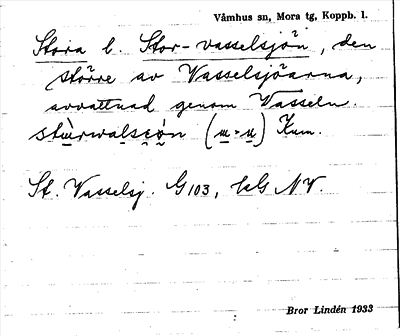 Våmhus sn, Mora tg, Koppb. l.
Stora l. Stor-vasselsjön, den
större av Vasselsjöarna,
avvattnad genom Vasseln.
Kum.
St. Vasselsj. G103, bG NV.
Bror Lindén 1933